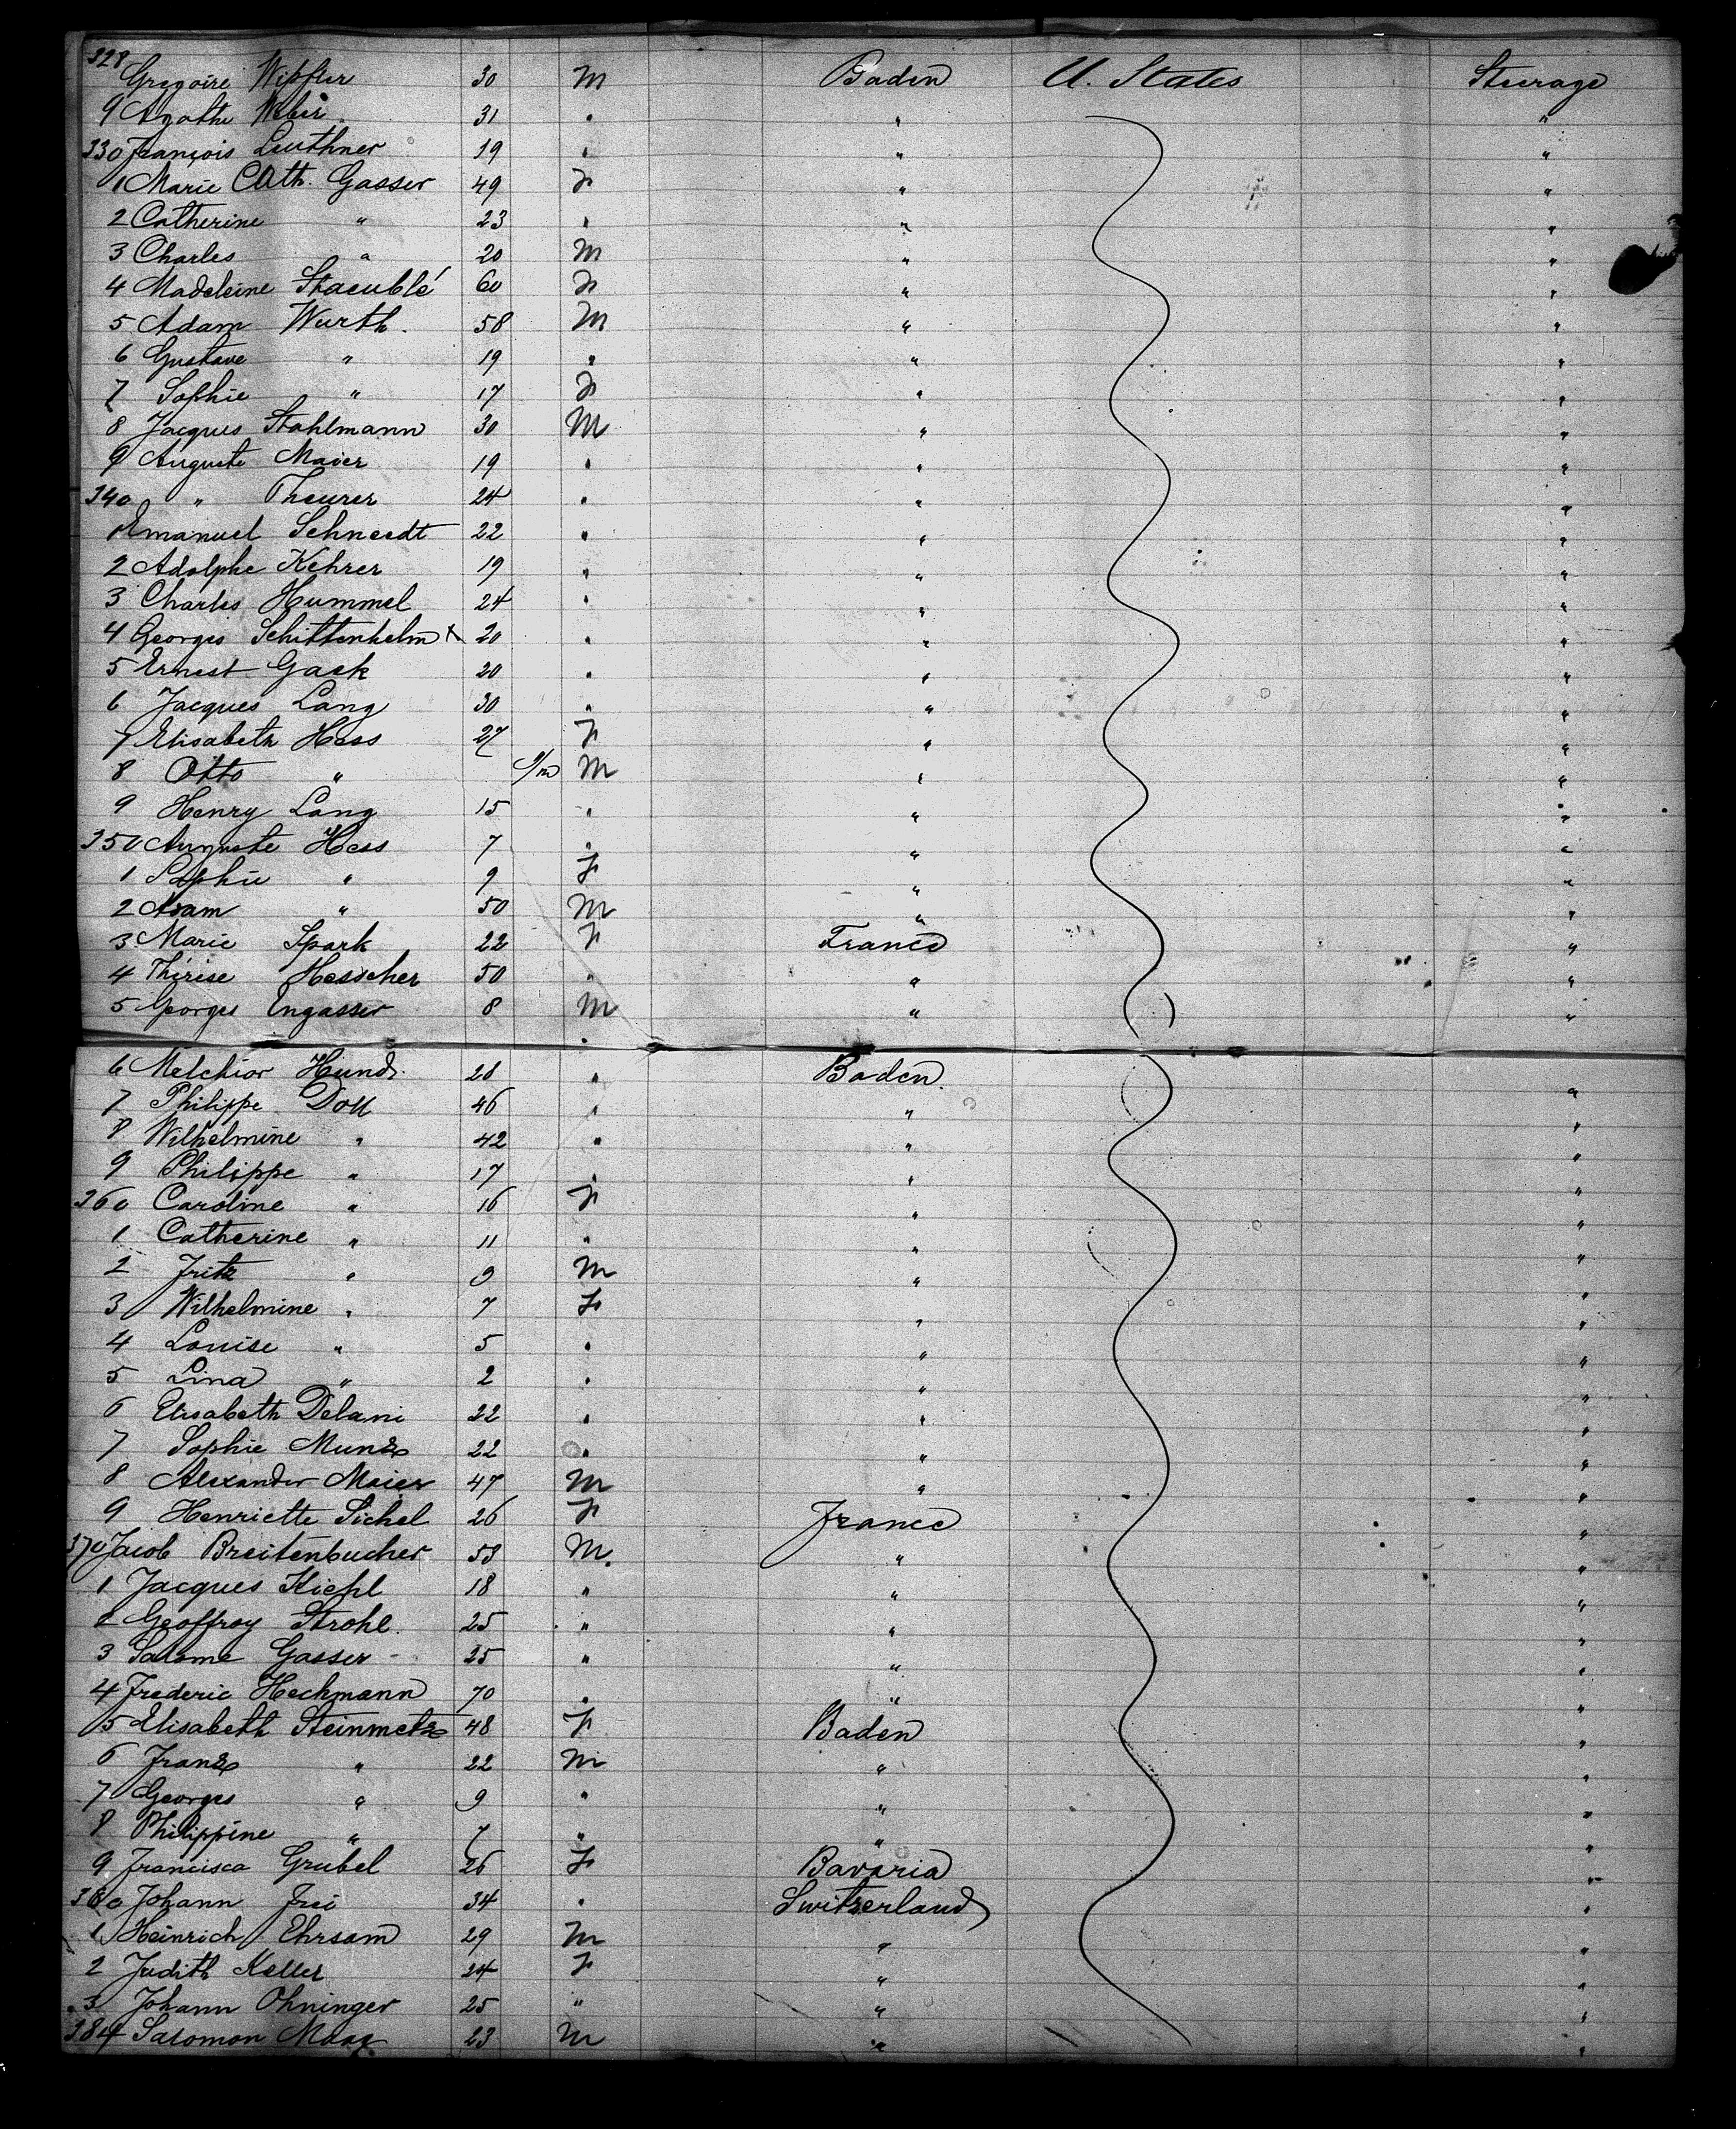 328 Gregoire Wipfler 30 M Baden U. States Steerage
9 Agathe Weber 31 " " "
330 François Leuthner 19 " " "
1 Marie Cath. Gasser 49 F " "
2 Catherine " 23 " " "
3 Charles " 20 M " "
4 Madeleine Staeublé 60 F " "
5 Adam Wurth. 58 M " "
6 Gustave " 19 " " "
7 Sophie " 17 F " "
8 Jacques Stahlmann 30 M " "
9 Auguste Maier 19 " " "
340 " Theurer 24 " " "
1 Emanuel Schneedt 22 " " "
2 Adolphe Kehrer 19 " " "
3 Charles Hummel 24 " " "
4 Georges Schittenhelm x 20 " " "
5 Ernest Gack 20 " " "
6 Jacques Lang 30 " " "
7 Elisabeth Hess 27 F " "
8 Otto " 9/m M " "
9 Henry Lang 15 " " "
350 Auguste Hess 7 " " "
1 Sophie " 9 F " "
2 Adam " 50 M " "
3 Marie Spark 22 F France "
4 Thérise Hesscher 50 " " "
5 Georges Engasser 8 M " "
6 Melchior Hund. 28 " Baden. "
7 Philippe Doll 46 " " "
8 Wilhelmine " 42 " " "
9 Philippe " 17 " " "
360 Caroline " 16 F " "
1 Catherine " 11 " " "
2 Fritz " 9 M " "
3 Wilhelmine " 7 F " "
4 Louise " 5 " " "
5 Lina " 2 " " "
6 Elisabeth Delani 22 " " "
7 Sophie Munz 22 " " "
8 Alexander Maier 47 M " "
9 Henriette Sichel 26 F France "
370 Jacob Breitenbucher 53 M. " "
1 Jacques Kiehl 18 " " "
2 Geoffroy Strohl. 25 " " "
3 Salome Gasser 25 " " "
4 Frederic Heckmann 70 " " "
5 Elisabeth Steinmetz 48 F Baden "
6 Franz " 22 M " "
7 Georges " 9 " " "
8 Philippine " 7 " " "
9 Francisca Grubel 26 F Bavaria "
380 Johann Frei 34 " Switzerland "
1 Heinrich Ehrsam 29 M " "
2 Judith Keller 24 F " "
3 Johann Ohninger 25 " " "
384 Salomon Maag 23 M " "